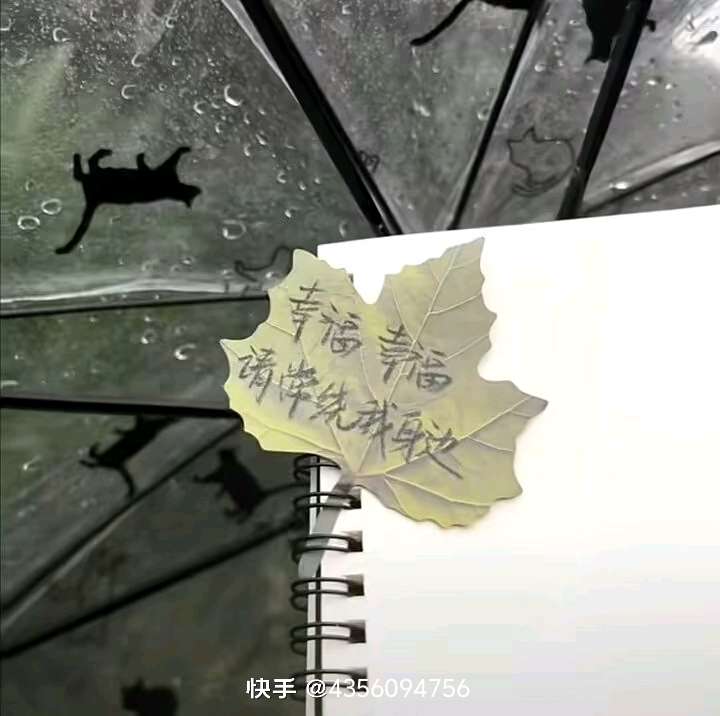 幸福 幸福
请牵绕我身边
快手 @4356094756